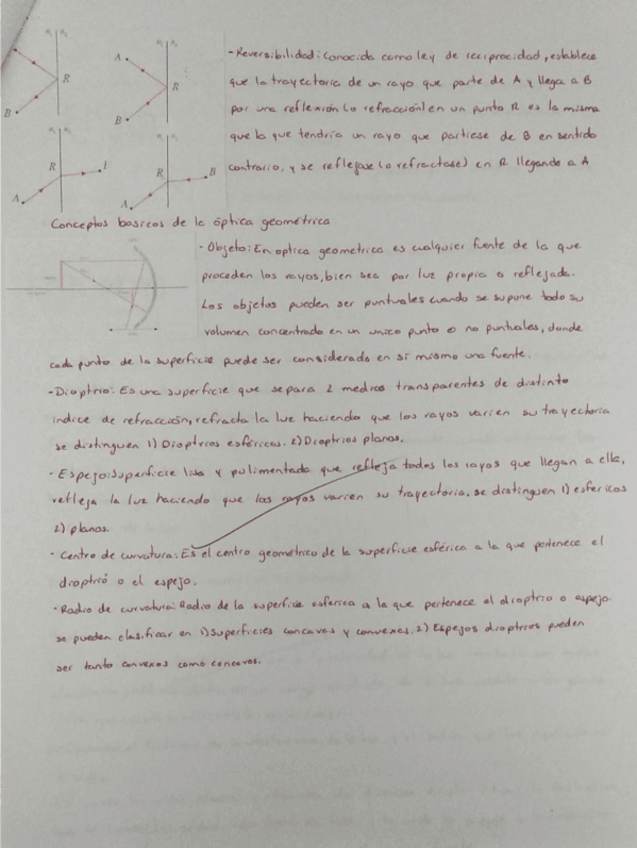 -Reversibilidad: Conocida como ley de reciprocidad, establece
que la trayectoria de un rayo que parte de A y llega a B
por una reflexión (o refracción) en un punto R es la misma
que la que tendría un rayo que partiese de B en sentido
contrario, y se reflejase (o refractase) en R llegando a A
A
R
B
R
B
R
A
R
B
A
Conceptos basicos de la óptica geométrica
- Objeto: En optica geometrica es cualquier fuente de la que
proceden los rayos, bien sea por luz propia o reflejada.
Los objetos pueden ser puntuales cuando se supone todo su
volumen concentrado en un unico punto o no puntuales, donde
cada punto de la superficie puede ser considerado en sí mismo una fuente.
-Dioptrio: Es una superficie que separa 2 medios transparentes de distinto
indice de refracción, refracta la luz haciendo que los rayos varien su trayectoria
se distinguen 1) Dioptrios esféricos. 2) Dioptrios planos.
- Espejo: superficie lisa y pulimentada que refleja todos los rayos que llegan a ella,
refleja la luz haciendo que los rayos varien su trayectoria, se distinguen 1) esfericos
2) planos.
- Centro de curvatura: Es el centro geométrico de la superficie esférica a la que pertenece el
dioptrió o el espejo.
- Radio de curvatura: Radio de la superficie esferica a la que pertenece el dioptrio o espejo
se pueden clasificar en 1) Superficies concavas y convexas. 2) Espejos dioptrios pueden
ser tanto convexos como concavos.